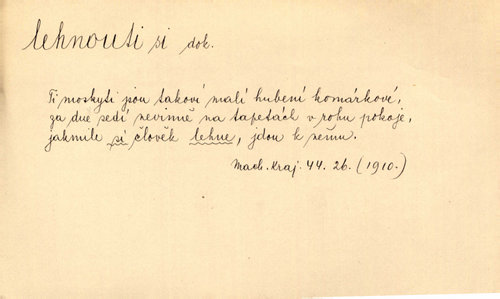 lehnouti si dok.
Ti moskyti jsou takoví malí hubení komárkové,
za dne sedí nevinně na tapetách v rohu pokoje,
jakmile si člověk lehne, jdou k němu.
Mach. Kraj. 44. 26. (1910.)